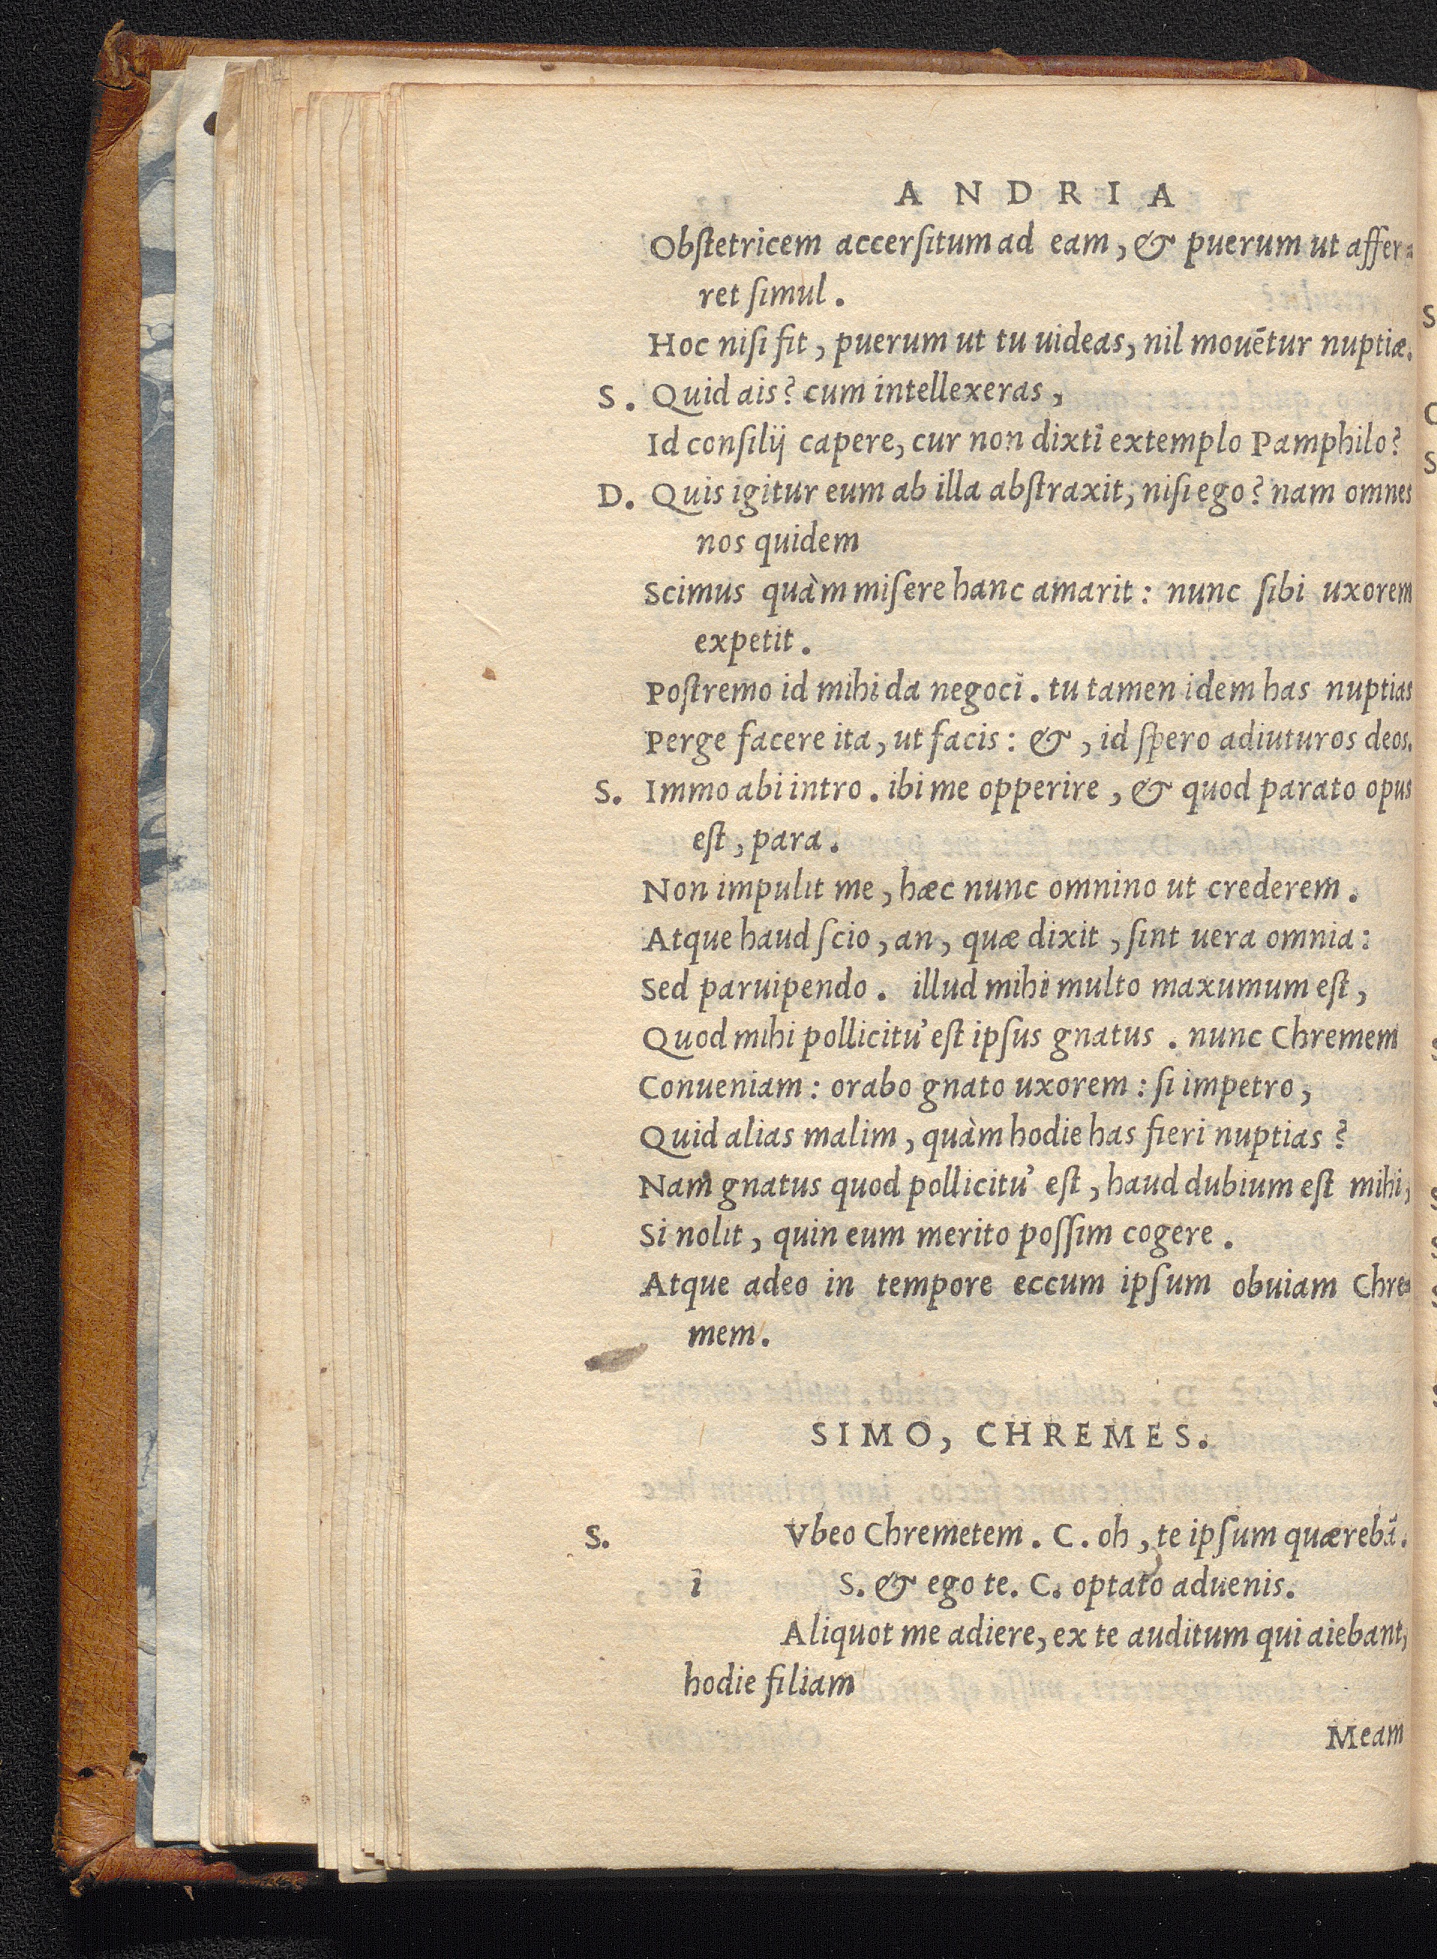 ANDRIA
Obstetricem accersitum ad eam, & puerum ut affer-
ret simul.
Hoc nisi fit, puerum ut tu uideas, nil mouētur nuptiæ.
S. Quid ais? cum intellexeras,
Id consilij capere, cur non dixti extemplo Pamphilo?
D. Quis igitur eum ab illa abstraxit, nisi ego? nam omnes
nos quidem
Scimus quàm misere hanc amarit: nunc sibi uxorem
expetit.
Postremo id mihi da negoci. tu tamen idem has nuptias
Perge facere ita, ut facis: &, id spero adiuturos deos.
S. Immo abi intro. ibi me opperire, & quod parato opus
est, para.
Non impulit me, hæc nunc omnino ut crederem.
Atque haud scio, an, quæ dixit, sint uera omnia:
Sed paruipendo. illud mihi multo maxumum est,
Quod mihi pollicitu' est ipsus gnatus. nunc Chremem
Conueniam: orabo gnato uxorem: si impetro,
Quid alias malim, quàm hodie has fieri nuptias?
Nam gnatus quod pollicitu' est, haud dubium est mihi,
Si nolit, quin eum merito possim cogere.
Atque adeo in tempore eccum ipsum obuiam Chre-
mem.
SIMO, CHREMES.
S. Vbeo Chremetem. C. oh, te ipsum quærebā.
i S. & ego te. C. optato aduenis.
Aliquot me adiere, ex te auditum qui aiebant,
hodie filiam
Meam